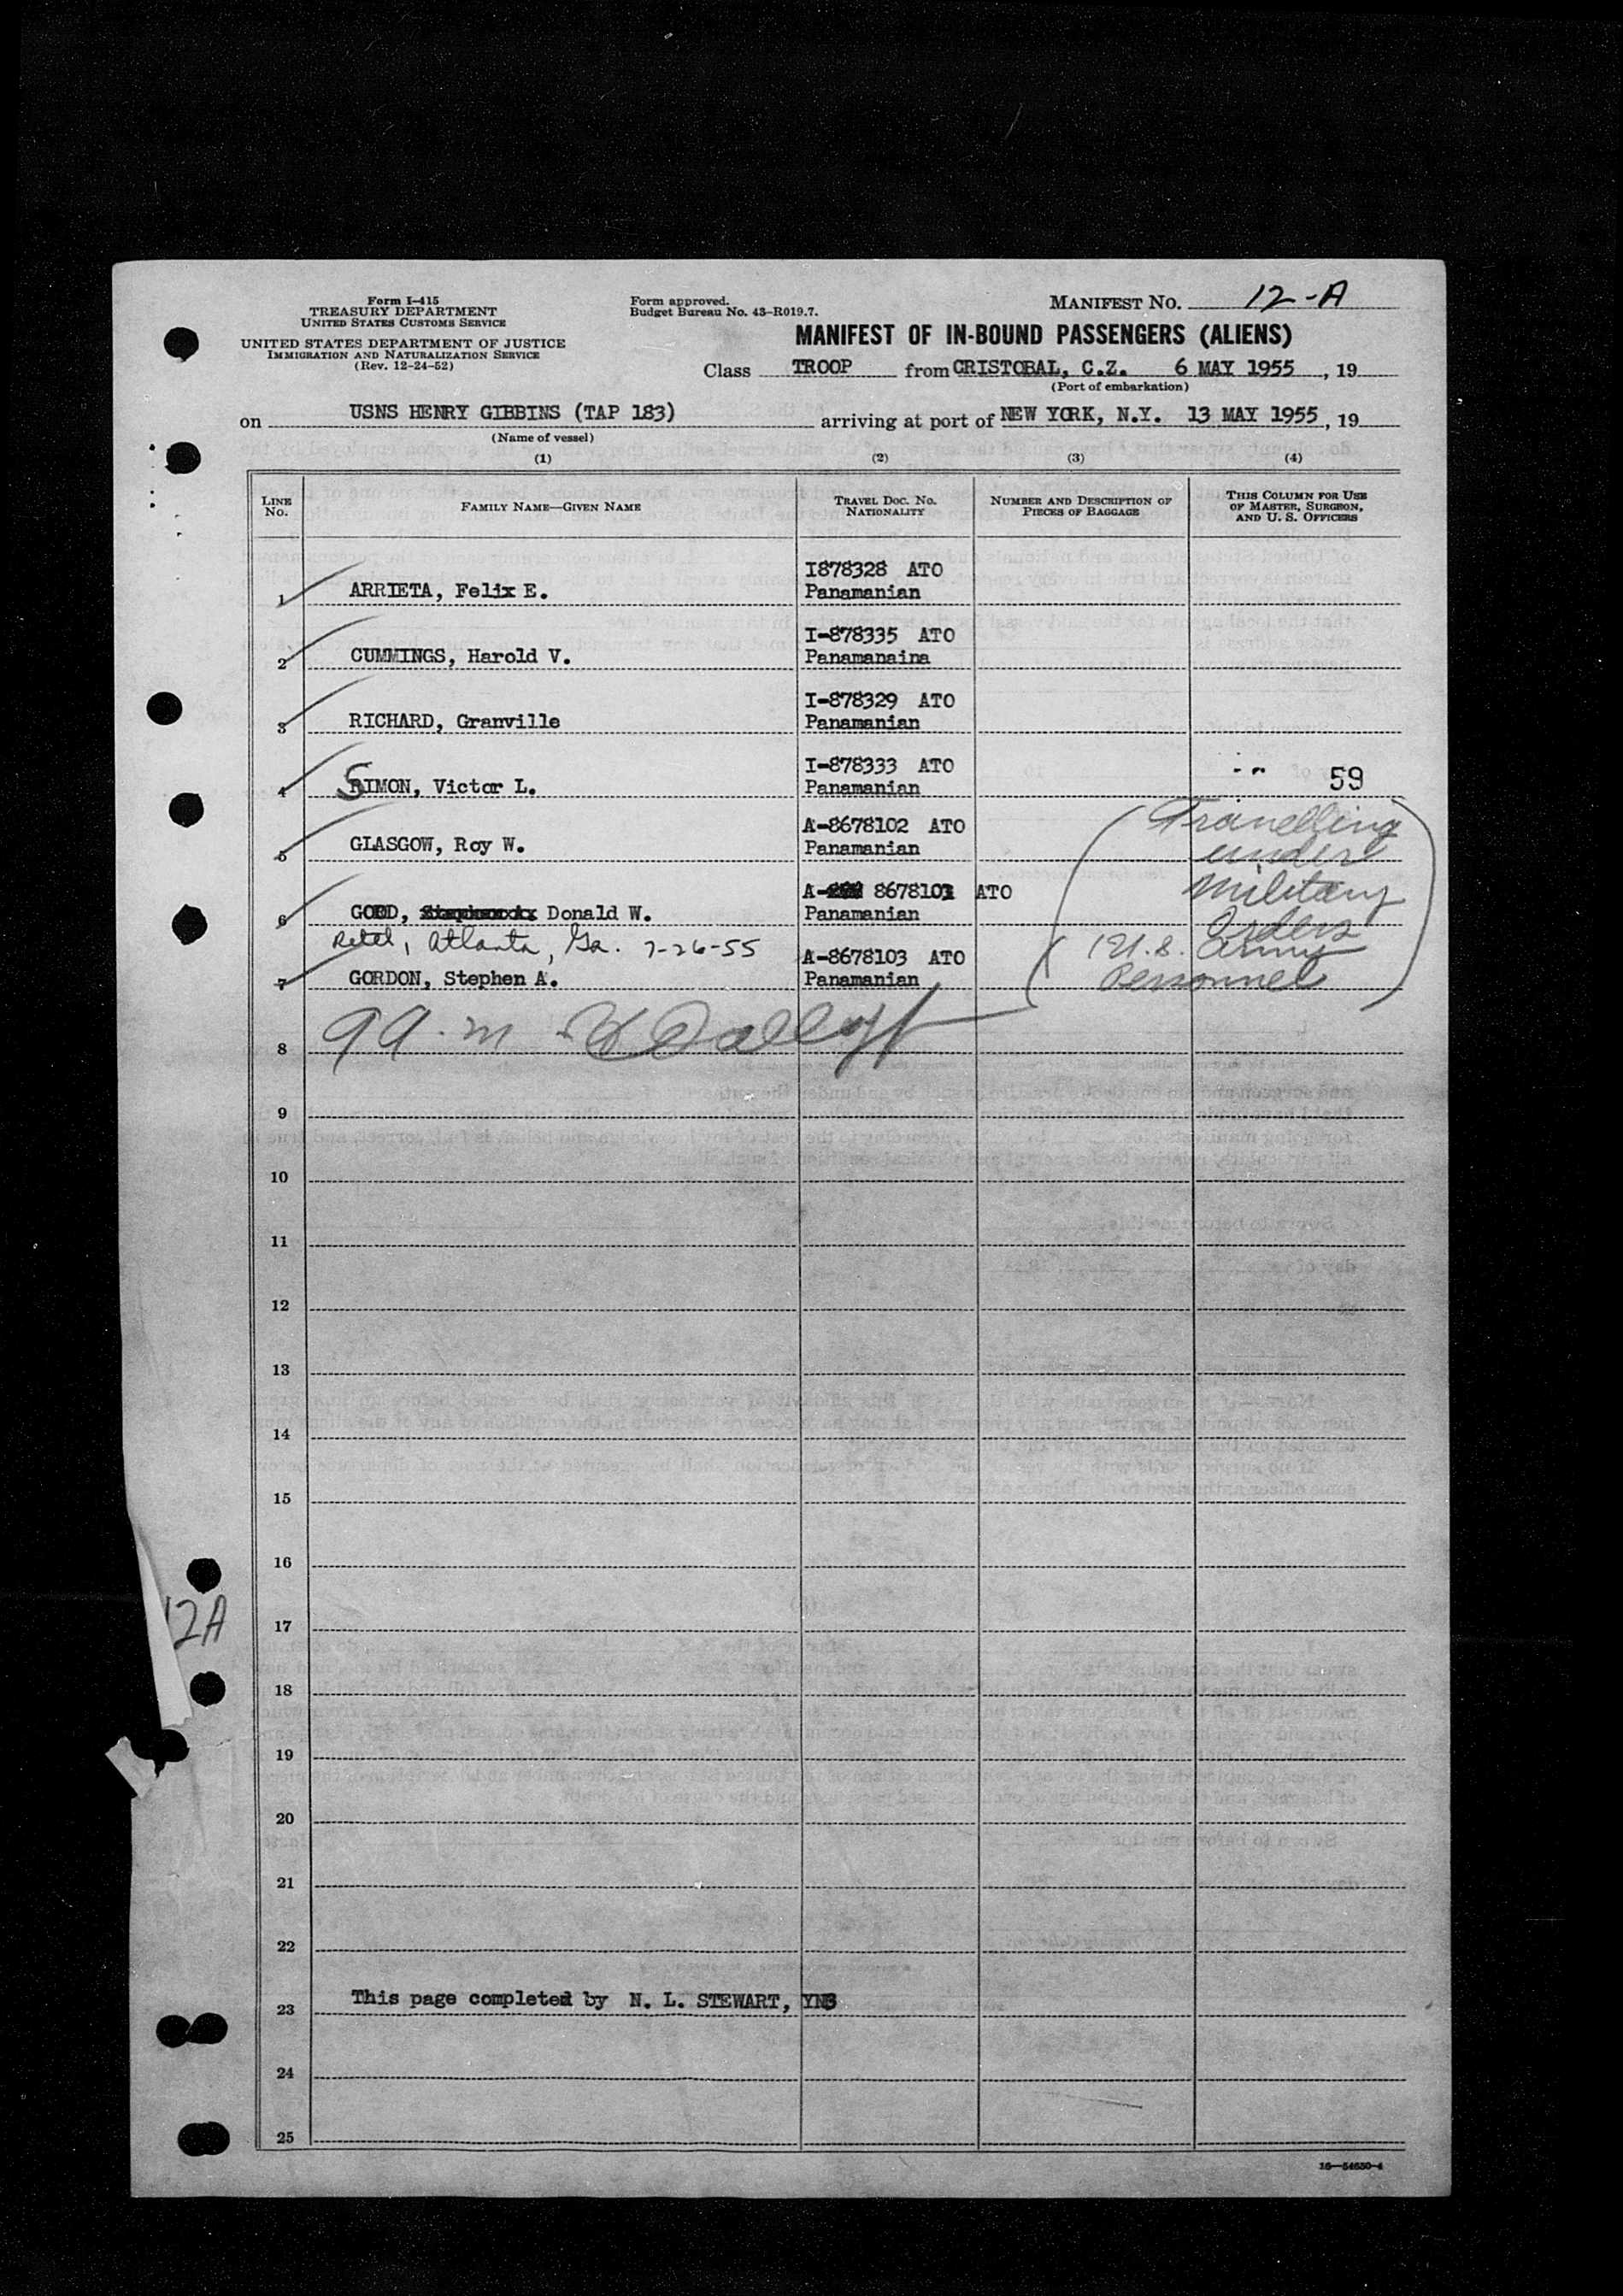 Form I-415
TREASURY DEPARTMENT
UNITED STATES CUSTOMS SERVICE
UNITED STATES DEPARTMENT OF JUSTICE
IMMIGRATION AND NATURALIZATION SERVICE
(Rev. 12-24-52)
Form approved.
Budget Bureau No. 43-R019.7.
MANIFEST NO. 12-A
MANIFEST OF IN-BOUND PASSENGERS (ALIENS)
Class TROOP from CRISTOBAL, C.Z. 6 MAY 1955, 19
(Port of embarkation)
on USNS HENRY GIBBINS (TAP 183) arriving at port of NEW YORK, N.Y. 13 MAY 1955, 19
(Name of vessel)
(1) (2) (3) (4)
LINE No. FAMILY NAME—GIVEN NAME TRAVEL DOC. NO. NATIONALITY NUMBER AND DESCRIPTION OF PIECES OF BAGGAGE THIS COLUMN FOR USE OF MASTER, SURGEON, AND U. S. OFFICERS
I878328 ATO
1 ARRIETA, Felix E. Panamanian
I-878335 ATO
2 CUMMINGS, Harold V. Panamanaina
I-878329 ATO
3 RICHARD, Granville Panamanian
I-878333 ATO
4 SIMON, Victor L. Panamanian 59
A-8678102 ATO Travelling
5 GLASGOW, Roy W. Panamanian under
A- 8678101 ATO Military
6 GOOD, Donald W. Panamanian Orders
Atlanta, Ga. 7-26-55 A-8678103 ATO U.S. Army
7 GORDON, Stephen A. Panamanian Personnel
8
9
10
11
12
13
14
15
16
17
12A
18
19
20
21
22
23 This page completed by N. L. STEWART, YN3
24
25
16—54650-4